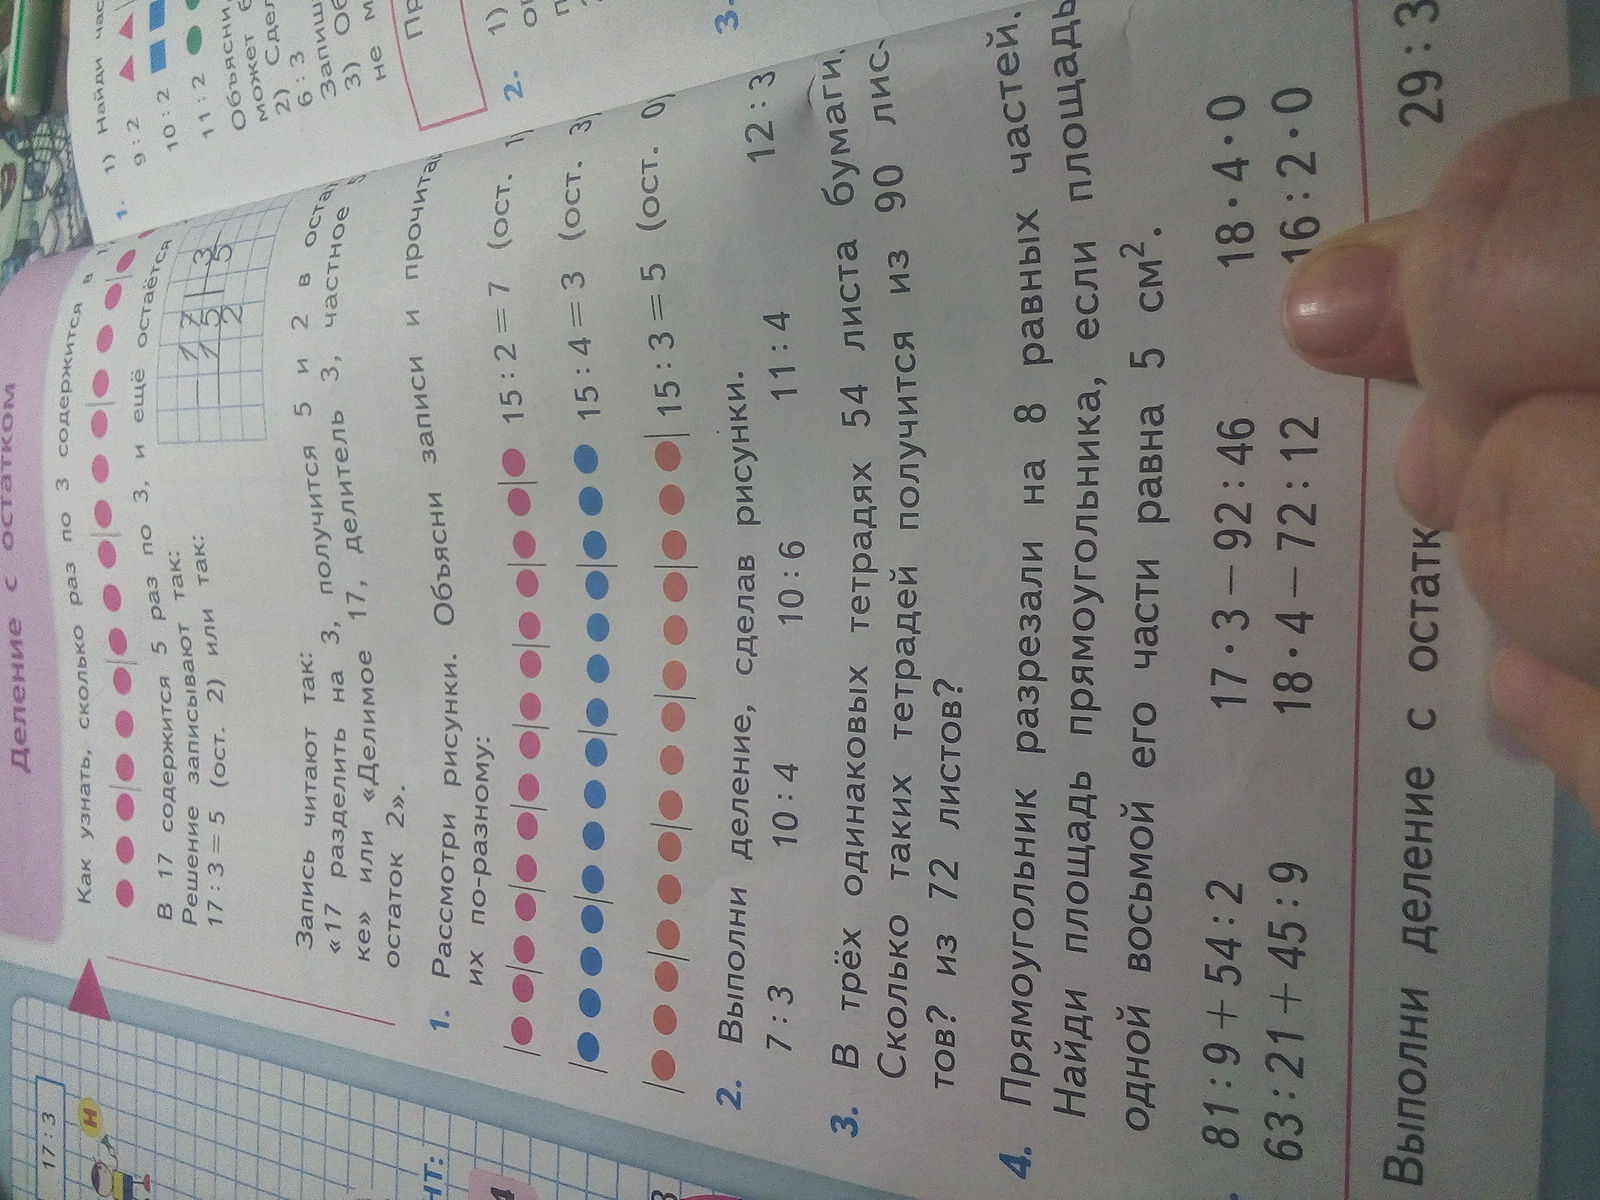 Деление с остатком
Как узнать, сколько раз по 3 содержится в
В 17 содержится 5 раз по 3, и ещё остаётся
Решение записывают так:
17 : 3 = 5 (ост. 2) или так:
17 3
15 5
2
Запись читают так:
«17 разделить на 3, получится 5 и 2 в
ке» или «Делимое 17, делитель 3, частное 5
остаток 2».
1. Рассмотри рисунки. Объясни записи и
их по-разному:
15 : 2 = 7 (ост. 1)
15 : 4 = 3 (ост. 3)
15 : 3 = 5 (ост. 0)
2. Выполни деление, сделав рисунки.
7 : 3 10 : 4 10 : 6 11 : 4 12 : 3
3. В трёх одинаковых тетрадях 54 листа бумаги.
Сколько таких тетрадей получится из 90 лис-
тов? из 72 листов?
4. Прямоугольник разрезали на 8 равных частей.
Найди площадь прямоугольника, если площадь
одной восьмой его части равна 5 см².
81 : 9 + 54 : 2 17 · 3 − 92 : 46 18 · 4 · 0
63 : 21 + 45 : 9 18 · 4 − 72 : 12 16 : 2 · 0
Выполни деление с 29 : 3
17 : 3
Н
НТ:
1. 1) Найди
9 : 2
10 : 2
11 : 2
может
2)
6 : 3
3)
не
2. 1)
3.